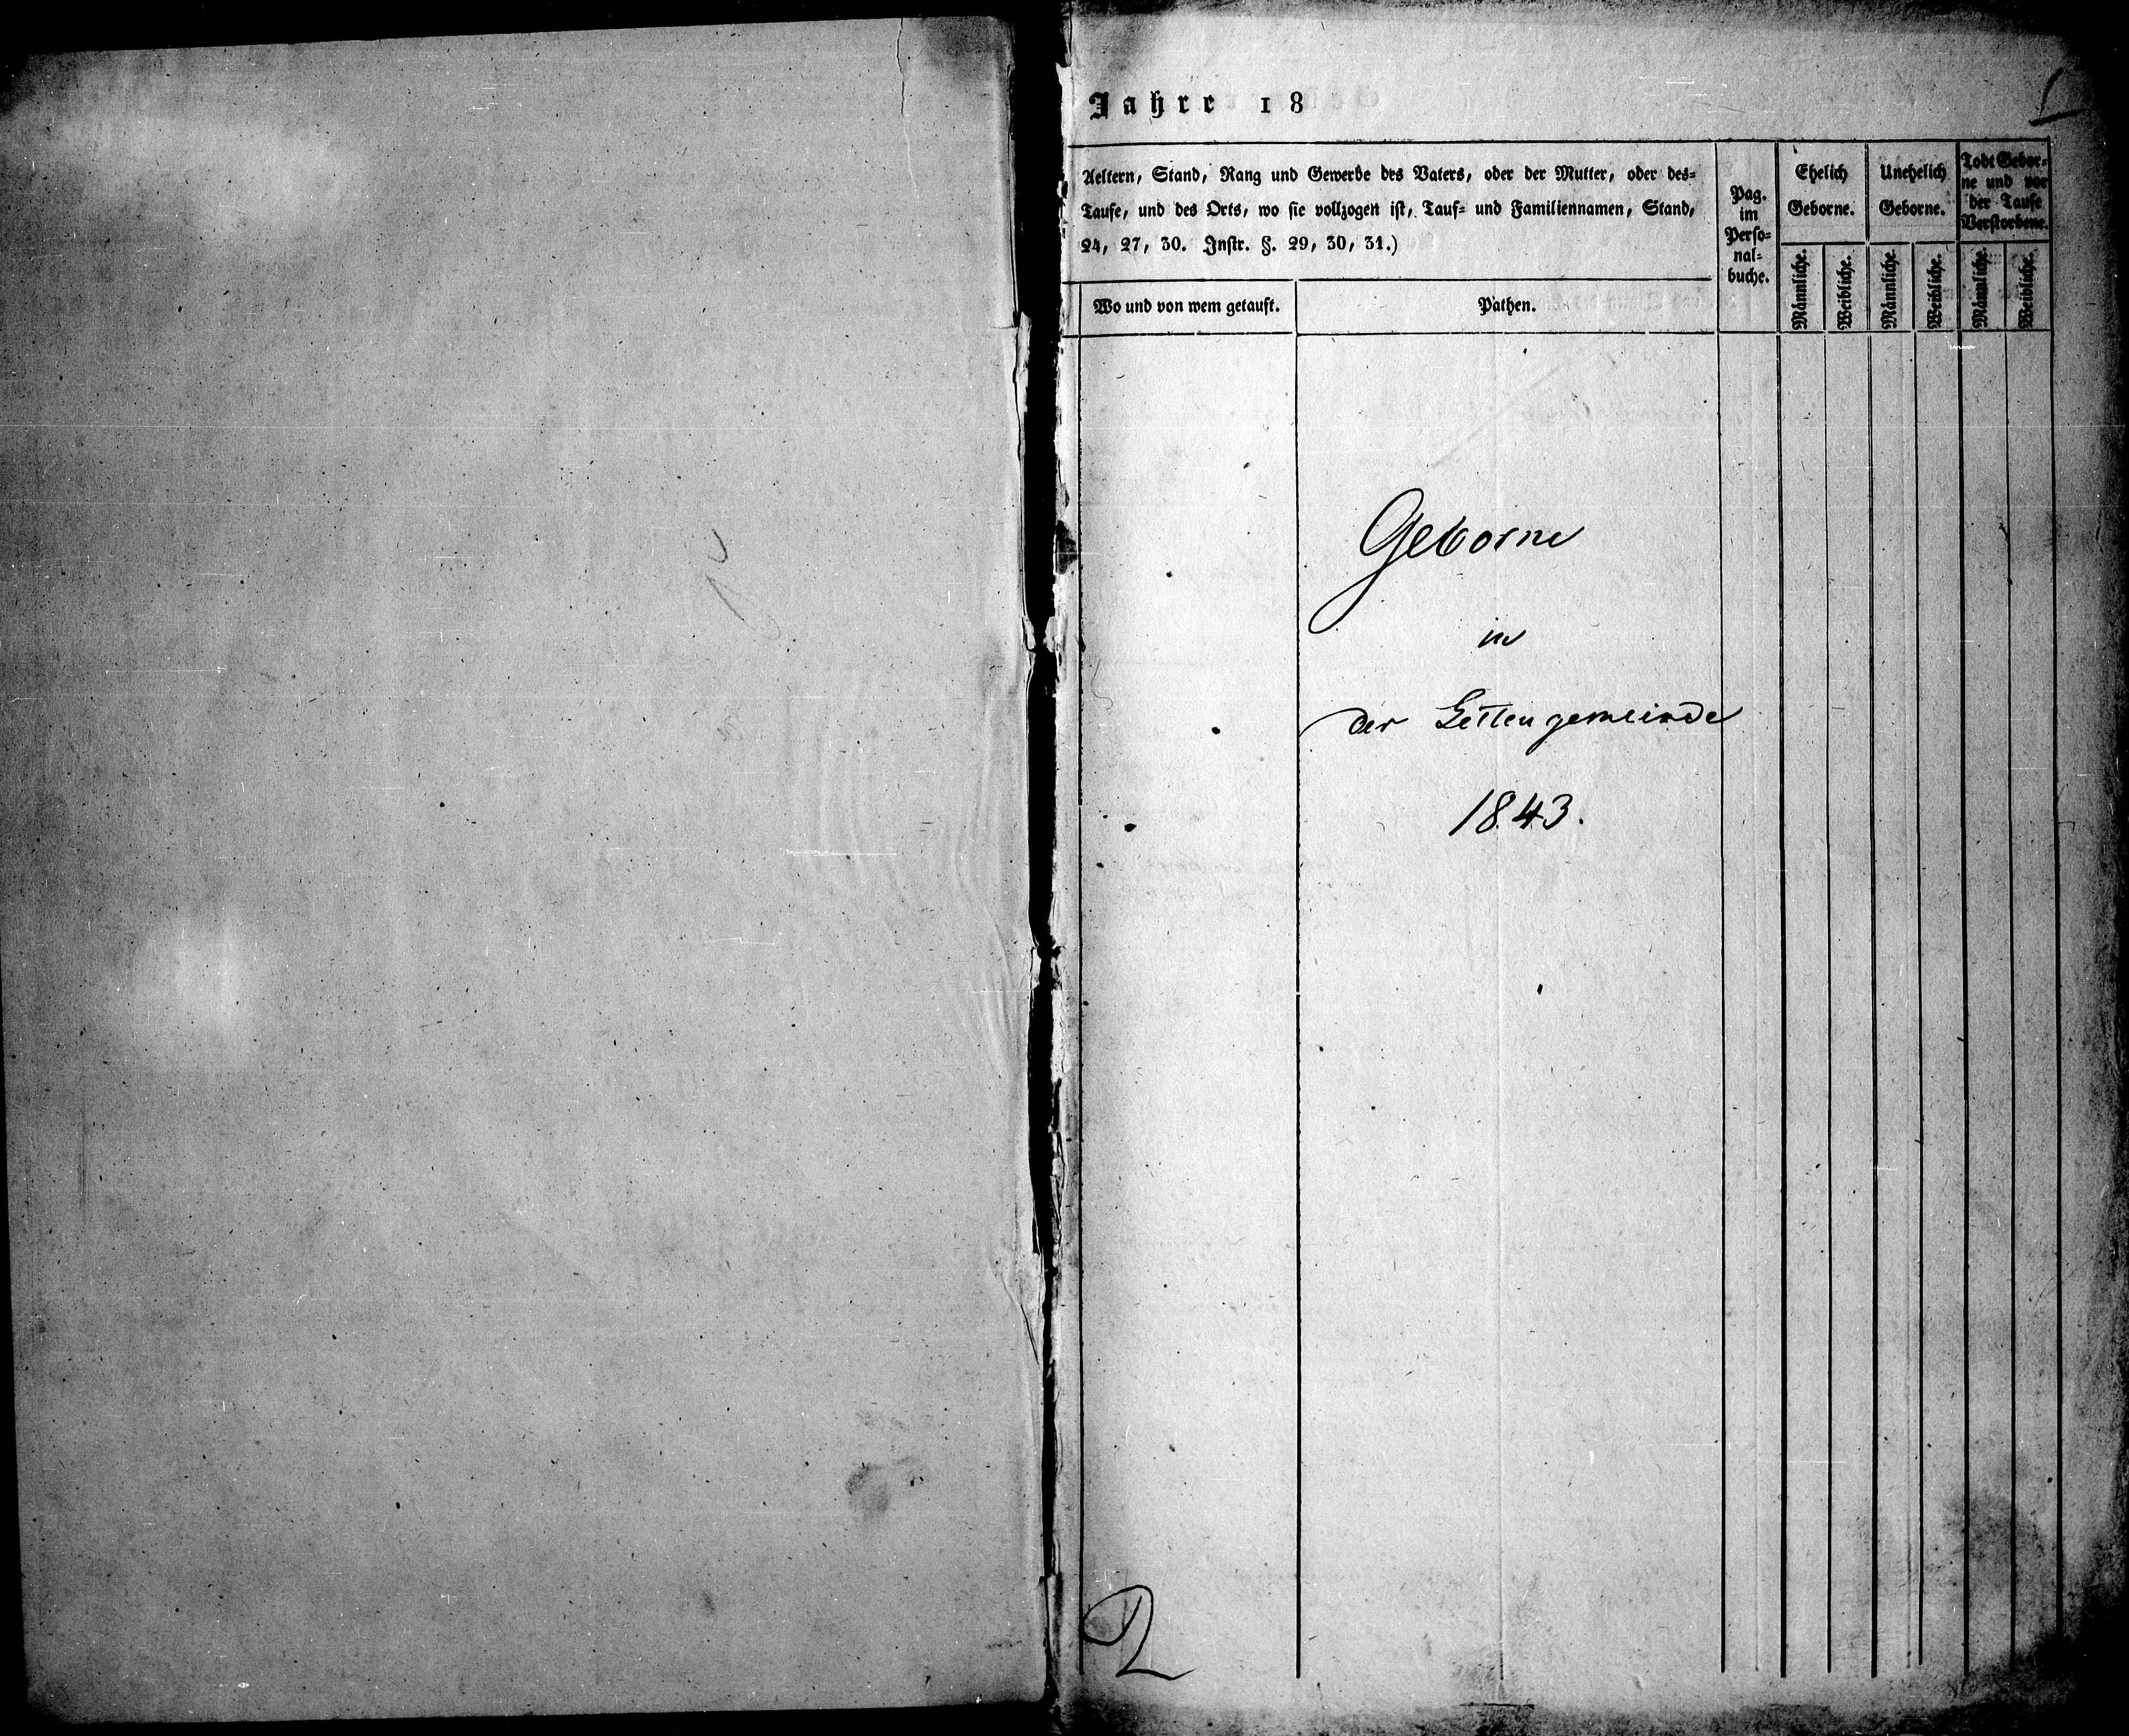 1
Jahre 18
Aeltern, Stand, Rang und Gewerbe des Vaters, oder der Mutter, oder des=
Taufe, und des Orts, wo sie vollzogen ist, Tauf= und Familiennamen, Stand,
24, 27, 30. Instr. §. 29, 30, 31.)
Wo und von wem getauft.
Pathen.
Pag.
im
Perso=
nal=
buche.
Ehelich
Geborne.
Unehelich
Geborne.
Todt Gebor=
ne und vor
der Taufe
Verstorbene.
Männliche.
Weibliche.
Männliche.
Weibliche.
Männliche.
Weibliche.
Geborne
in
der Lettengemeinde
1843.
2